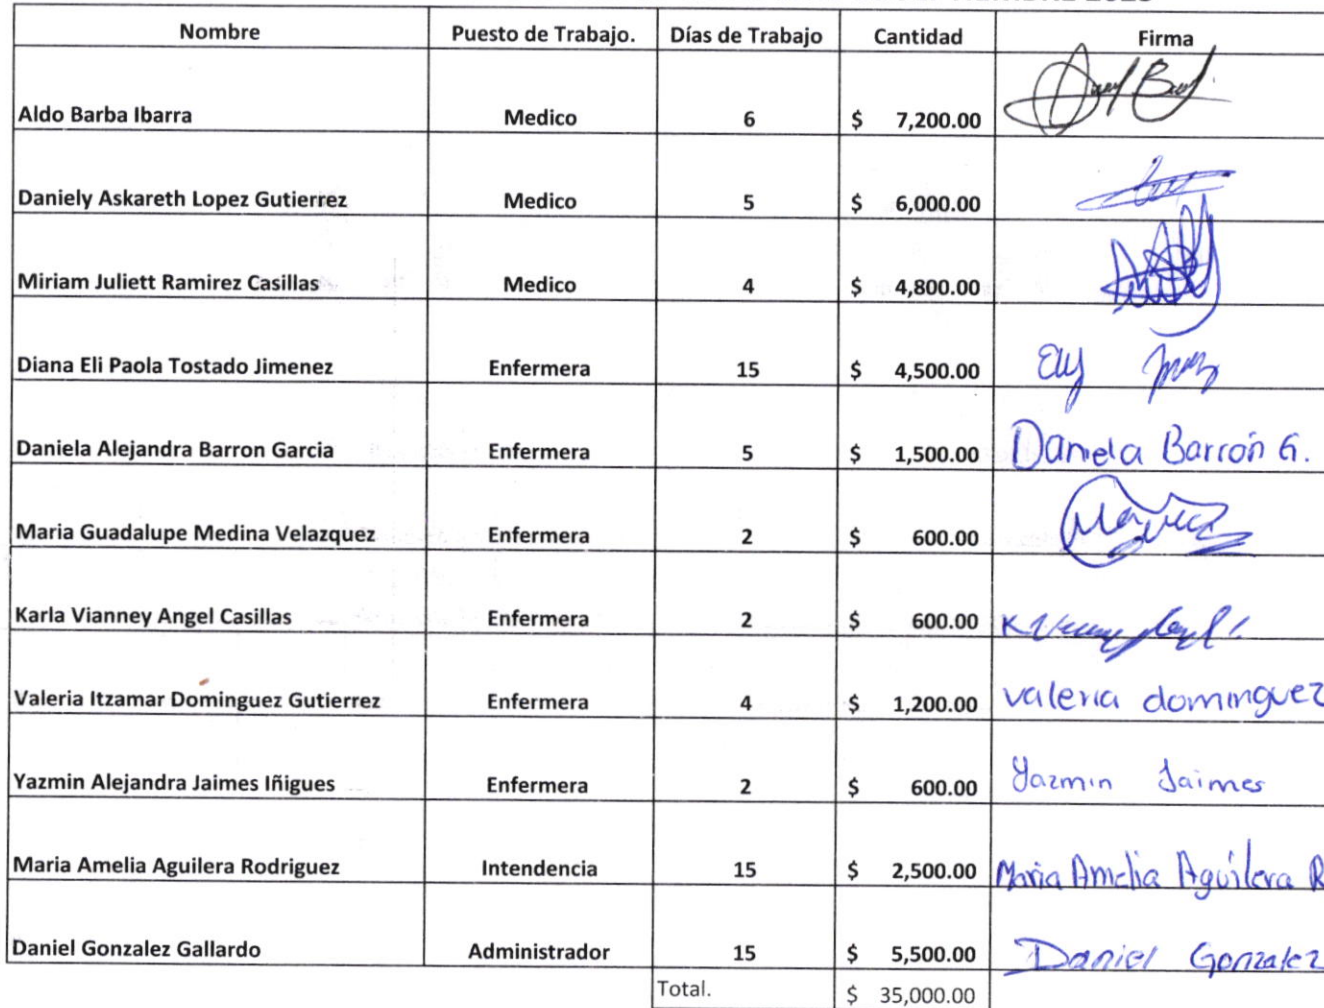 Nombre Puesto de Trabajo. Días de Trabajo Cantidad Firma
Aldo Barba Ibarra Medico 6 $ 7,200.00
Daniely Askareth Lopez Gutierrez Medico 5 $ 6,000.00
Miriam Juliett Ramirez Casillas Medico 4 $ 4,800.00
Diana Eli Paola Tostado Jimenez Enfermera 15 $ 4,500.00 Ely
Daniela Alejandra Barron Garcia Enfermera 5 $ 1,500.00 Daniela Barrón G.
Maria Guadalupe Medina Velazquez Enfermera 2 $ 600.00
Karla Vianney Angel Casillas Enfermera 2 $ 600.00
Valeria Itzamar Dominguez Gutierrez Enfermera 4 $ 1,200.00 valeria dominguez
Yazmin Alejandra Jaimes Iñigues Enfermera 2 $ 600.00 Yazmin Jaimes
Maria Amelia Aguilera Rodriguez Intendencia 15 $ 2,500.00 Maria Amelia Aguilera R
Daniel Gonzalez Gallardo Administrador 15 $ 5,500.00 Daniel Gonzalez
Total. $ 35,000.00